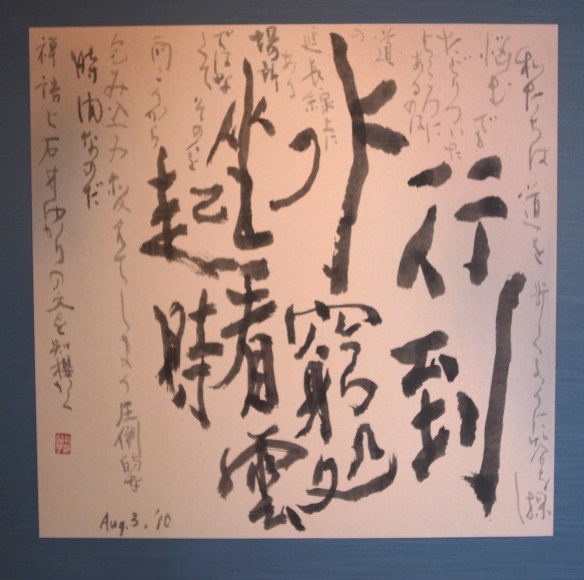 行到
水窮処
坐看雲
起時
私たちは道を歩くように答を探し
悩む でも
たどりついた
ところに
あるのは
道
の
延長線上に
ある
場所
ではな
くて
向こうから
包み込み てしまう圧倒的な
時間なのだ
禅語と石井ゆかりの文を
Aug.3, '10